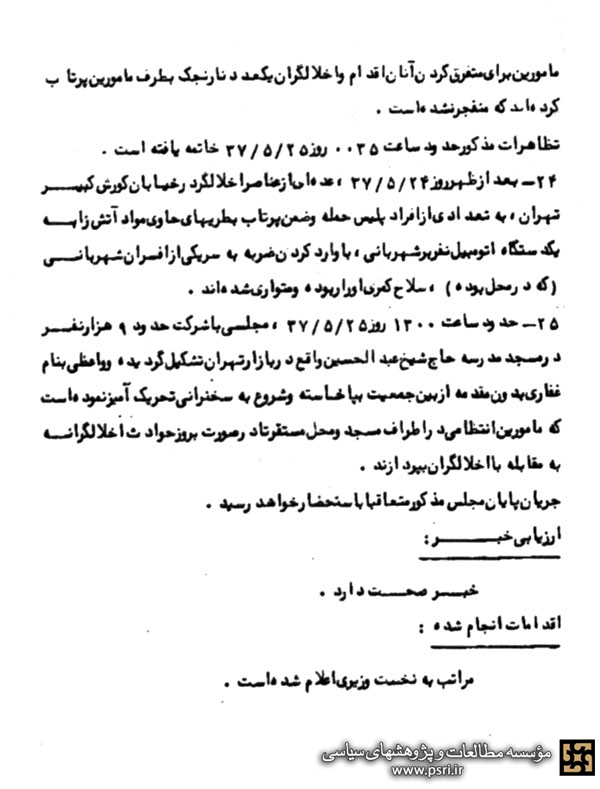 مامورین برای متفرق کردن آنان اقدام و اخلالگران یکعدد نارنجک بطرف مامورین پرتاب
کرده‌اند که منفجر نشده است .
تظاهرات مذکور حدود ساعت ۰۰۳۵ روز ۳۷/۵/۲۵ خاتمه یافته است .
۲۴ــ بعد از ظهر روز ۳۷/۵/۲۴ ، عده‌ای از عناصر اخلالگر در خیابان کورش کبیر
تهران ، به تعدادی از افراد پلیس حمله و ضمن پرتاب بطریهای حاوی مواد آتش زا به
یکدستگاه اتومبیل نفربر شهربانی ، با وارد کردن ضربه به سر یکی از افسران شهربانی
(که در محل بوده) ، سلاح کمری او را ربوده و متواری شده‌اند .
۲۵ــ حدود ساعت ۱۳۰۰ روز ۳۷/۵/۲۵ ، مجلسی با شرکت حدود ۹ هزار نفر
در مسجد مدرسه حاج شیخ عبدالحسین واقع در بازار تهران تشکیل گردیده و واعظی بنام
غفاری بدون مقدمه از بین جمعیت بپا خاسته و شروع به سخنرانی تحریک آمیز نموده است
که مامورین انتظامی در اطراف مسجد و محل مستقر تا در صورت بروز حوادث اخلالگرانه
به مقابله با اخلالگران بپردازند .
جریان پایان مجلس مذکور متعاقبا باستحضار خواهد رسید .
ارزیابی خبر :
خبر صحت دارد .
اقدامات انجام شده :
مراتب به نخست وزیری اعلام شده است .
مؤسسه مطالعات و پژوهشهای سیاسی
www.psri.ir